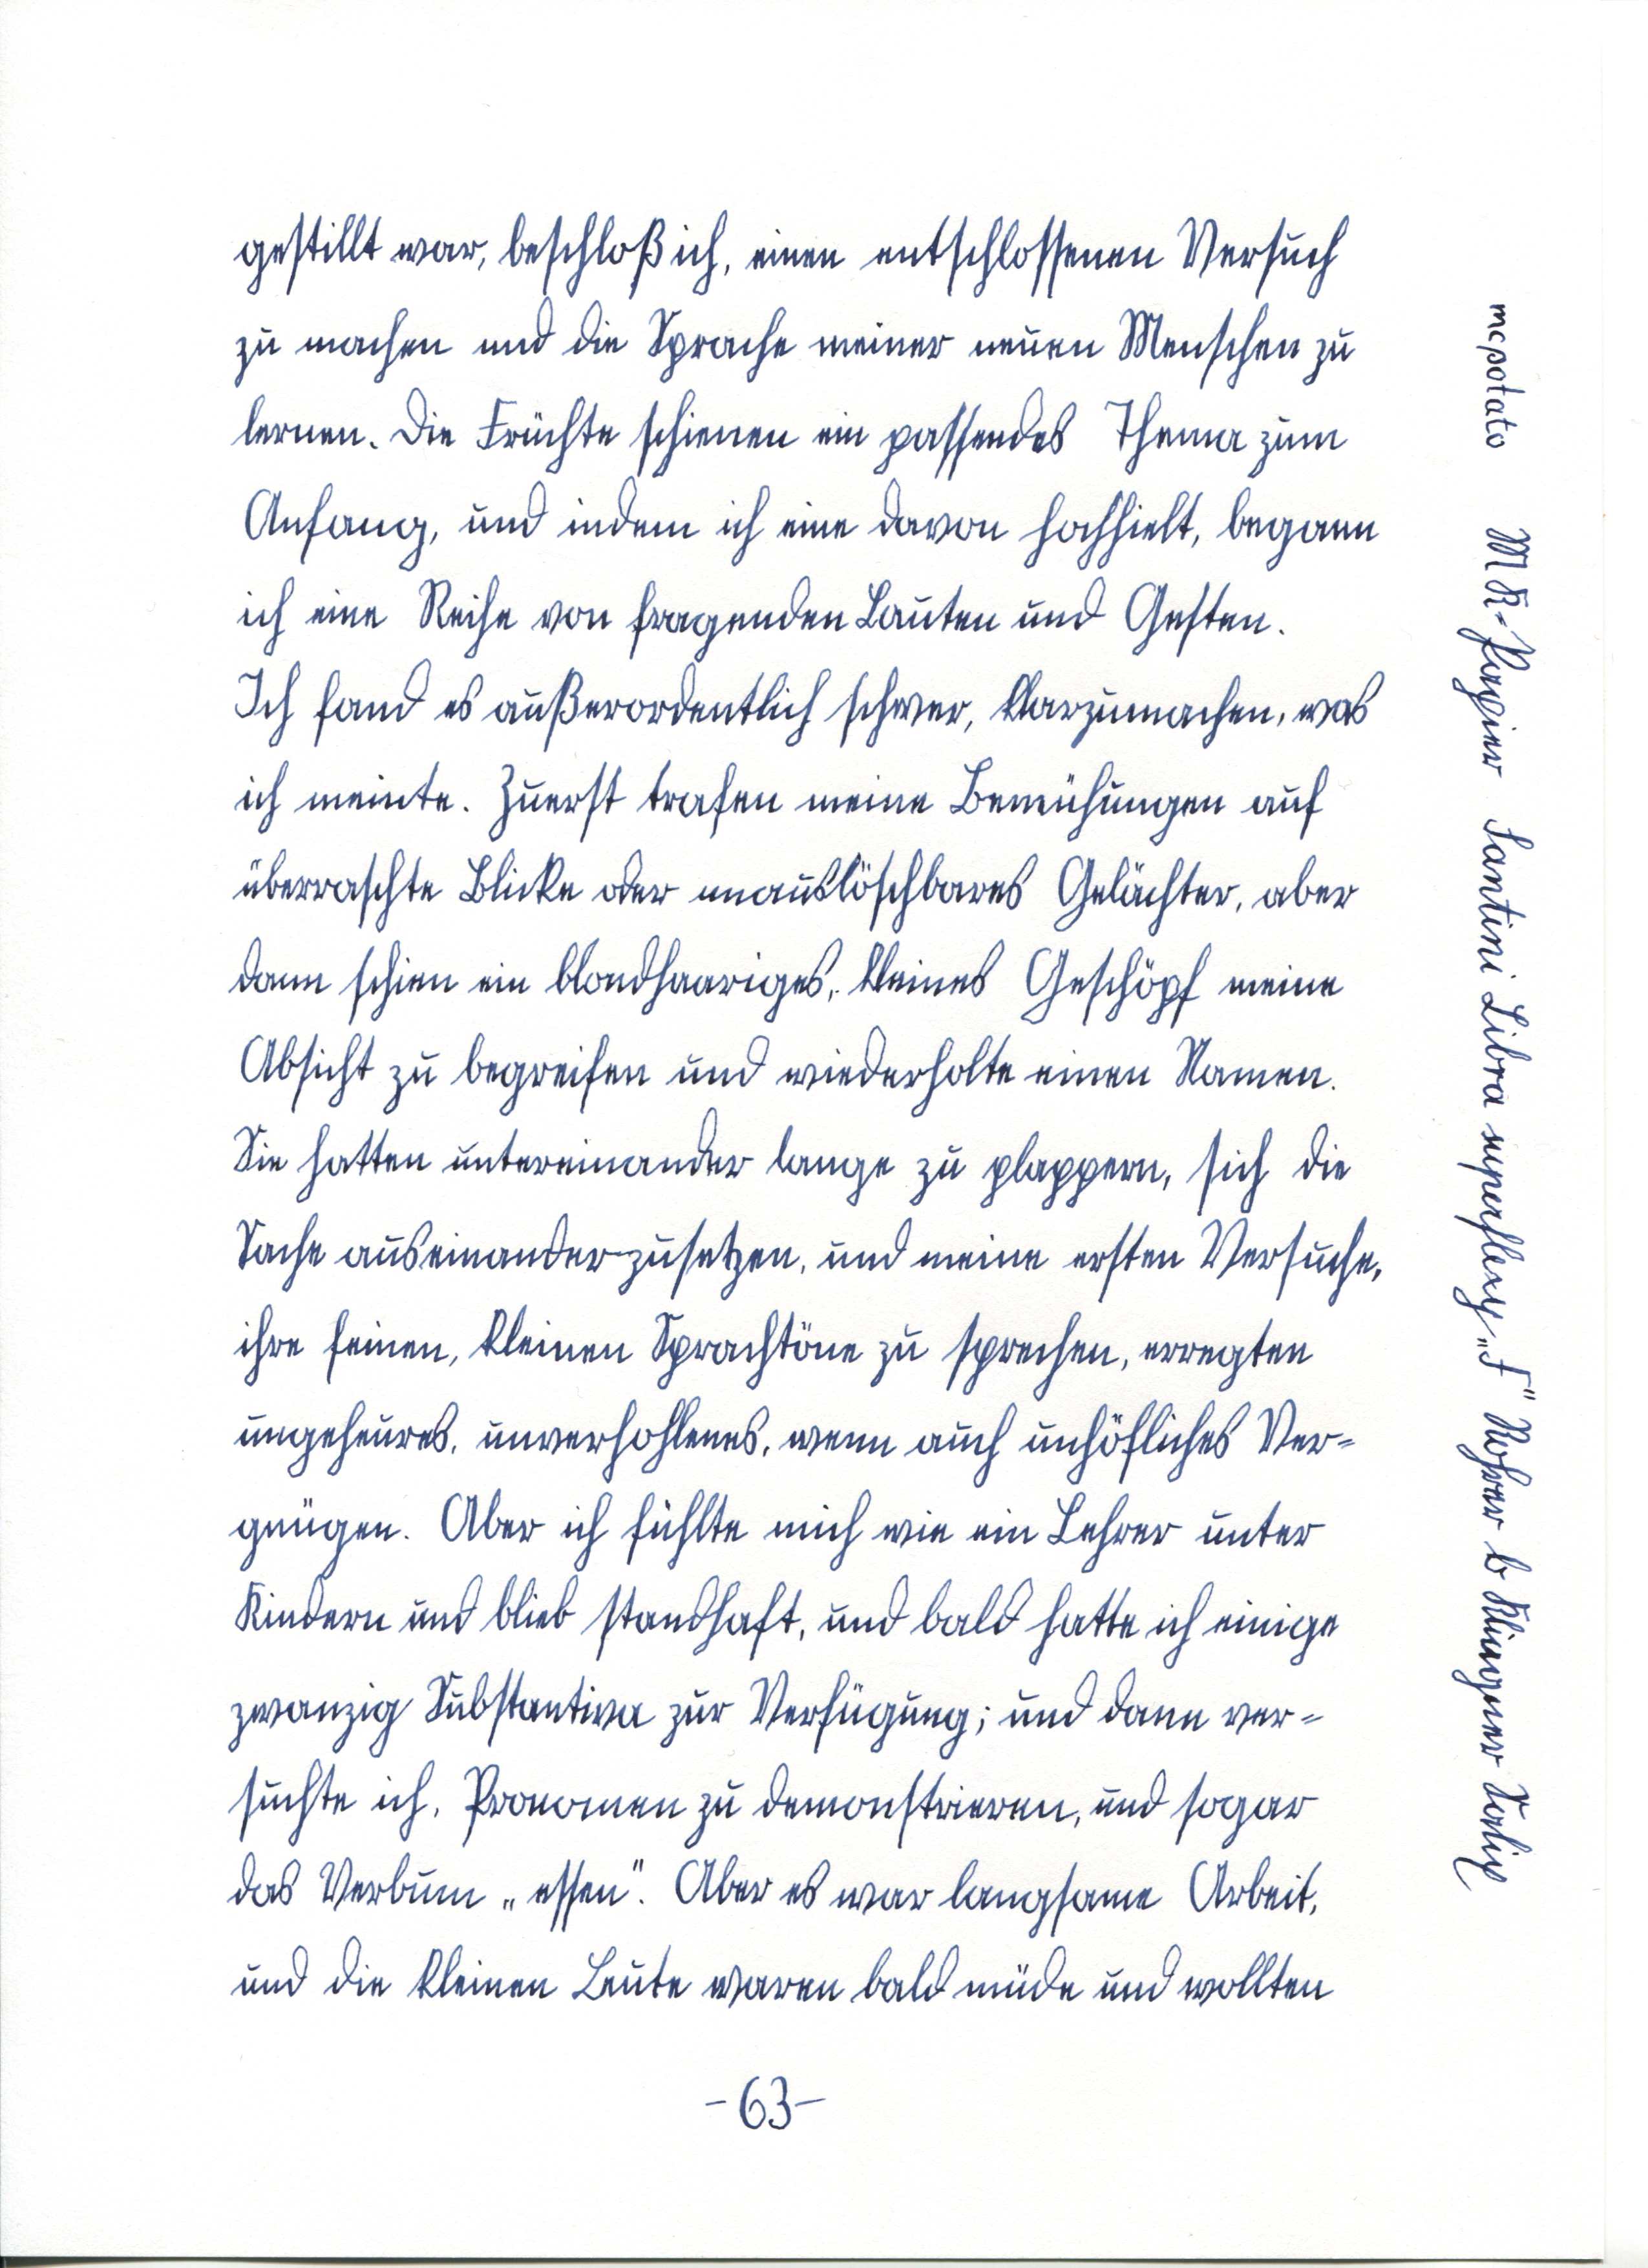 gestillt war, beschloß ich, einen entschlossenen Versuch
zu machen und die Sprache meiner neuen Menschen zu
lernen. Die Früchte schienen ein passendes Thema zum
Anfang, und indem ich eine davon hochhielt, begann
ich eine Reihe von fragenden Lauten und Gesten.
Ich fand es außerordentlich schwer, klarzumachen, was
ich meinte. Zuerst trafen meine Bemühungen auf
überraschte Blicke oder unauslöschbares Gelächter, aber
dann schien ein blondhaariges, kleines Geschöpf meine
Absicht zu begreifen und wiederholte einen Namen.
Sie hatten untereinander lange zu plappern, sich die
Sache auseinanderzusetzen, und meine ersten Versuche,
ihre feinen, kleinen Sprachtöne zu sprechen, erregten
ungeheures, unverhohlenes, wenn auch unhöfliches Ver=
gnügen. Aber ich fühlte mich wie ein Lehrer unter
Kindern und blieb standhaft, und bald hatte ich einige
zwanzig Substantiva zur Verfügung; und dann ver=
suchte ich, Pronomen zu demonstrieren, und sogar
das Verbum „essen". Aber es war langsame Arbeit,
und die kleinen Leute waren bald müde und wollten
-63-
mcpotato MK-Papier Santini Libra superflexy „F" Rohrer & Klingner Salix